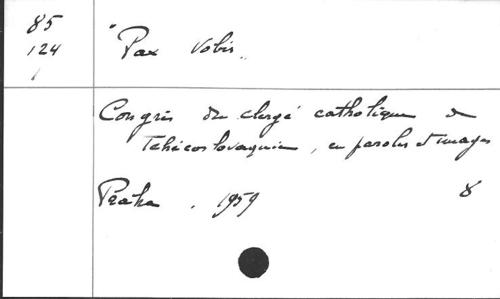 85
124
"Pax Vobis"
Congrès du clergé catholique de
Tchécoslovaquie, en paroles et images
Praha. 1959 8